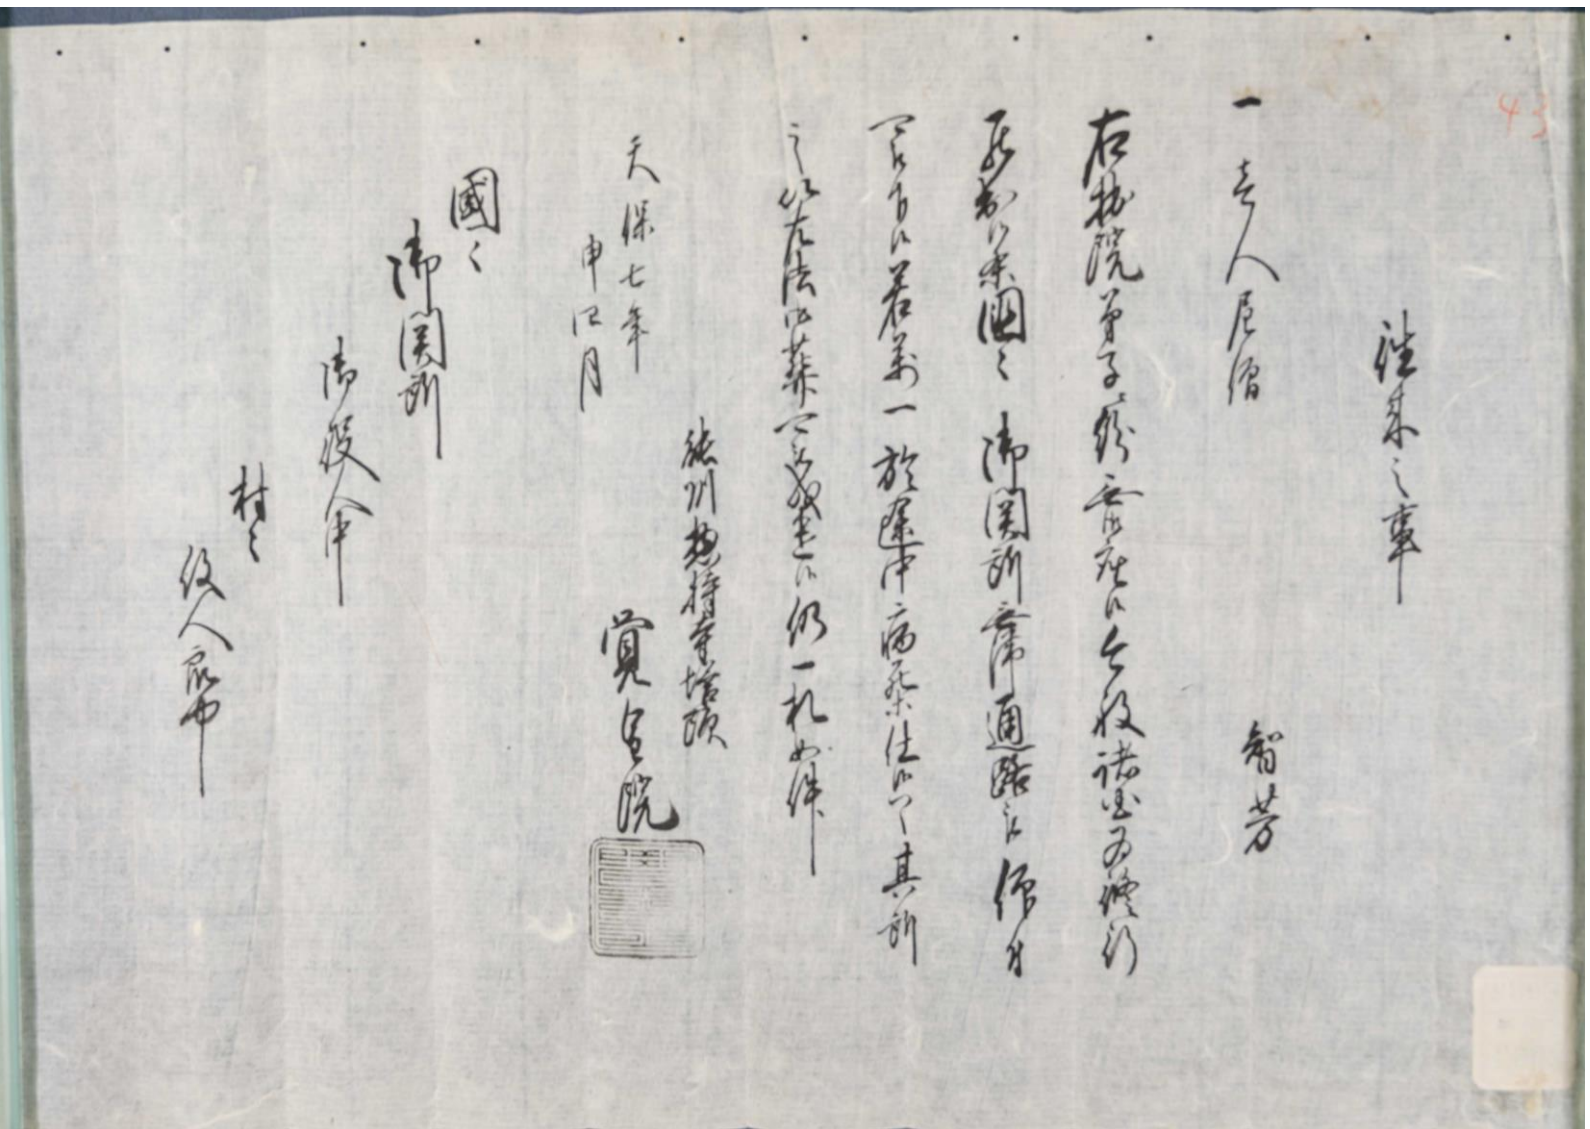 43
往来之事
一 壱人 尼僧 智芳
右拙院弟子ニ紛無御座候今般諸国為修行
罷出候条国々御関所無滞通路被仰付
可被下候若万一於途中病死仕候ハヽ其所
之以作法御葬可被成遣候仍一札如件
能州惣持寺塔頭
天保七年
申四月
覚皇院
國々
御関所
御役人中
村々
役人衆中